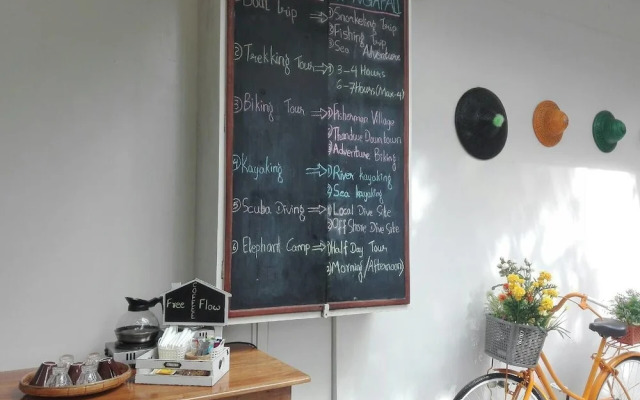 NGAPALI
① Boat trip ⇒ ① Snorkeling Trip
② Fishing Trip
③ Sea Adventure
② Trekking Tour ⇒ ① 3-4 Hours
6-7 Hours (Max-4)
③ Biking Tour ⇒ ① Fisherman Village
② Thandwe Downtown
③ Adventure Biking
④ Kayaking ⇒ ① River kayaking
② Sea kayaking
⑤ Scuba Diving ⇒ ① Local Dive Site
② Off Shore Dive Site
⑥ Elephant Camp ⇒ ① Half Day Tour
② (Morning/Afternoon)
COFFEE
Free Flow